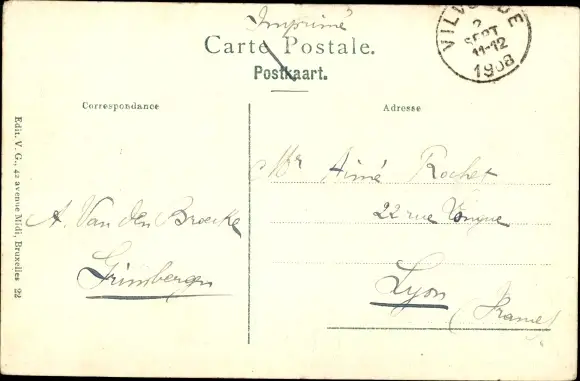 Imprimé
Carte Postale.
Postkaart.
VILVORDE
2
SEPT
11-12
1908
Correspondance
Adresse
Edit. V. G., 42 avenue Midi, Bruxelles 22
A. Van den Broecke
Grimbergen
Mr Aimé Rochet
22 rue
Lyon
(France)